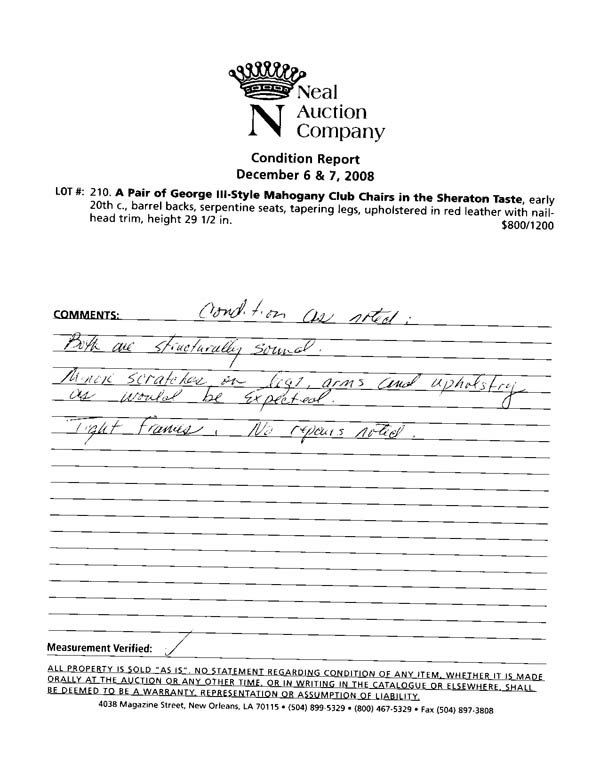 Neal
N Auction
Company
Condition Report
December 6 & 7, 2008
LOT #: 210. A Pair of George III-Style Mahogany Club Chairs in the Sheraton Taste, early
20th c., barrel backs, serpentine seats, tapering legs, upholstered in red leather with nail-
head trim, height 29 1/2 in. $800/1200
COMMENTS: Condition as noted:
Both are structurally sound.
Minor scratches on legs, arms and upholstry
as would be expected.
Tight frames. No repairs noted.
Measurement Verified: ✓
ALL PROPERTY IS SOLD "AS IS". NO STATEMENT REGARDING CONDITION OF ANY ITEM, WHETHER IT IS MADE
ORALLY AT THE AUCTION OR ANY OTHER TIME, OR IN WRITING IN THE CATALOGUE OR ELSEWHERE, SHALL
BE DEEMED TO BE A WARRANTY, REPRESENTATION OR ASSUMPTION OF LIABILITY.
4038 Magazine Street, New Orleans, LA 70115 • (504) 899-5329 • (800) 467-5329 • Fax (504) 897-3808